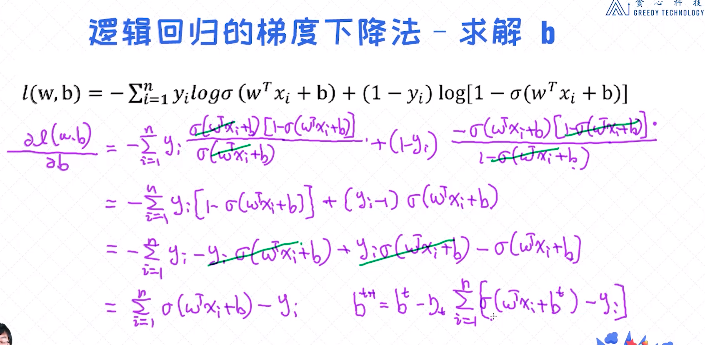 贪心科技
GREEDY TECHNOLOGY
逻辑回归的梯度下降法 - 求解 b
l(w, b) = − ∑ᵢ₌₁ⁿ yᵢ logσ (wᵀxᵢ + b) + (1 − yᵢ) log[1 − σ(wᵀxᵢ + b)]
∂l(w,b)/∂b = −∑ᵢ₌₁ⁿ yᵢ σ(wᵀxᵢ+b)[1−σ(wᵀxᵢ+b)]/σ(wᵀxᵢ+b) + (1−yᵢ) −σ(wᵀxᵢ+b)[1−σ(wᵀxᵢ+b)]/1−σ(wᵀxᵢ+b)
= −∑ᵢ₌₁ⁿ yᵢ[1−σ(wᵀxᵢ+b)] + (yᵢ−1) σ(wᵀxᵢ+b)
= −∑ᵢ₌₁ⁿ yᵢ − yᵢσ(wᵀxᵢ+b) + yᵢσ(wᵀxᵢ+b) − σ(wᵀxᵢ+b)
= ∑ᵢ₌₁ⁿ σ(wᵀxᵢ+b) − yᵢ bᵗ⁺¹ = bᵗ − ηₜ ∑ᵢ₌₁ⁿ [σ(wᵀxᵢ+bᵗ) − yᵢ]